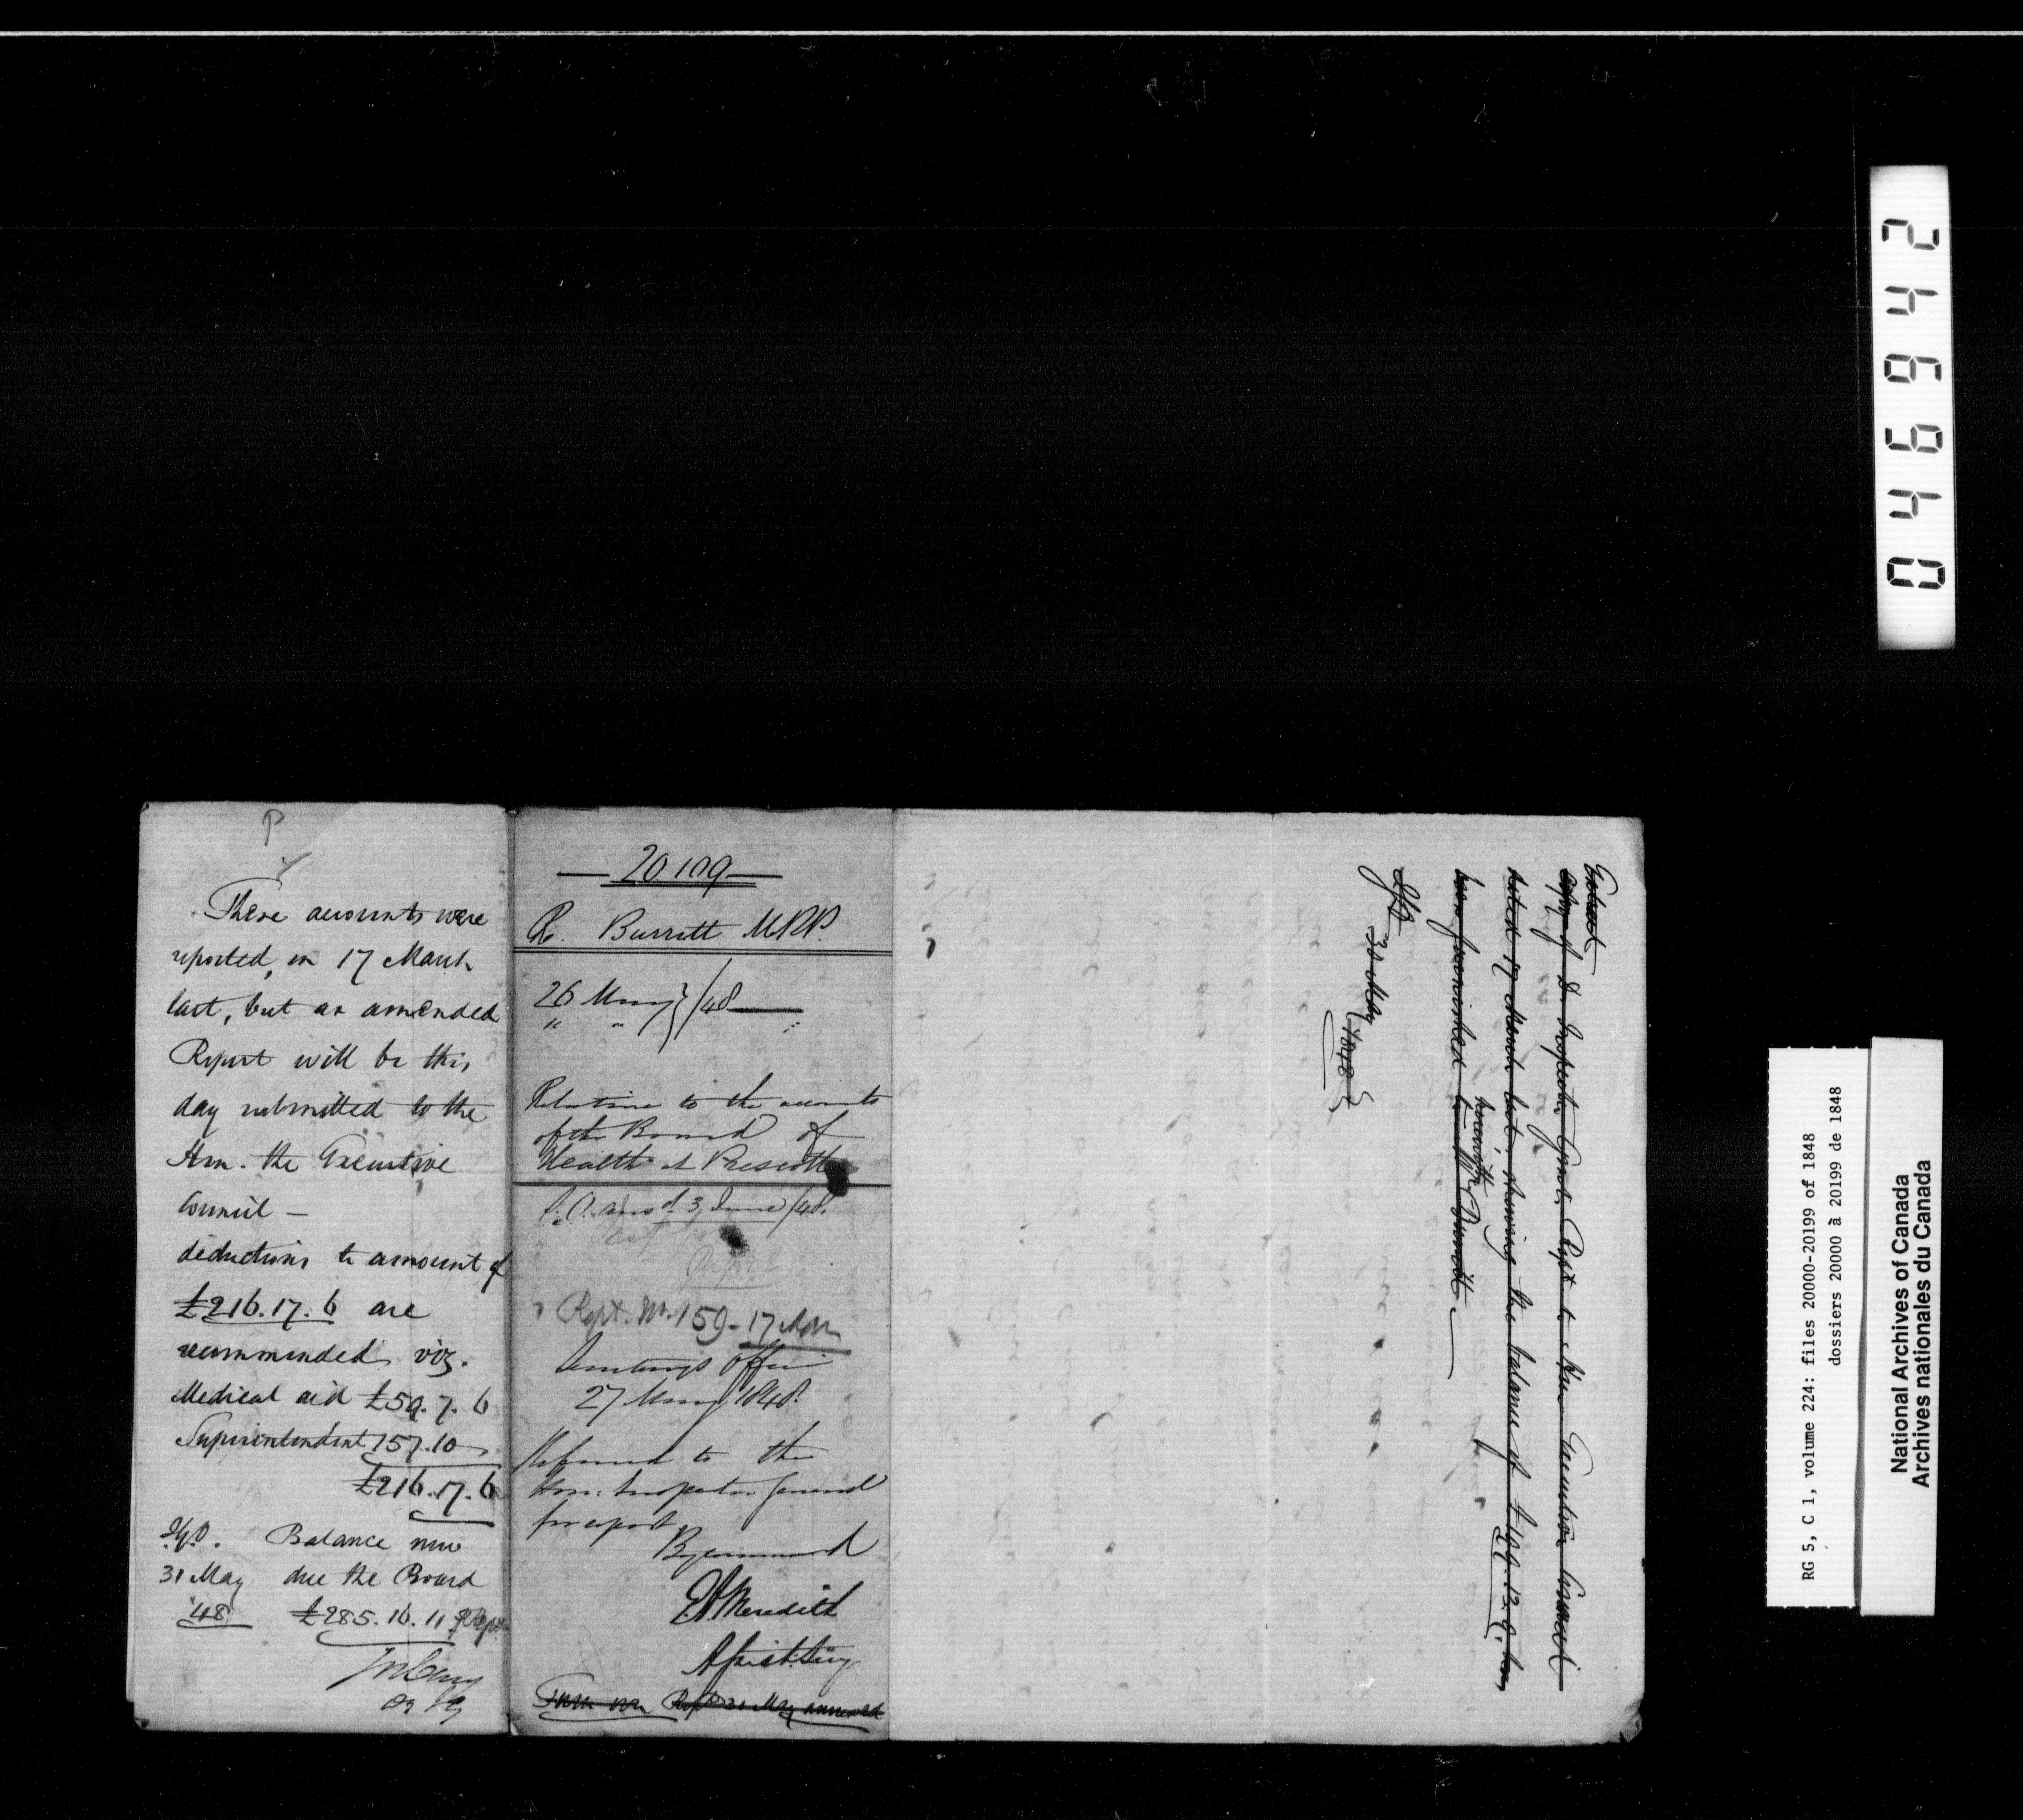 P
These accounts were
reported, on 17 March
last, but an amended
Report will be this
day submitted to the
Hon. the Executive
Council —
deductions to amount of
£216.17.6 are
recommended viz.
Medical aid £59.7.6
Superintendent 157.10
£216.17.6
I.G.O. Balance now
31 May due the Board
'48 £285.16.11
20109
R. Burritt MPP.
26 May } /48
" "
Relative to the accounts
of the Board of
Health at Prescott
ansd. 3 June /48.
Rept. No. 159 - 17 Mar
Secretary's Office
27 May 1848.
Referred to the
Hon: Inspector General
for report
By command
EA Meredith
Asist. Secy
Rept 31 May annexed
Extract
copy of D. Inspector Genl. Rept to Hon Executive Council
dated 17 March last, showing the balance of £ 12.9. has
been furnished to Mr Burritt
herewith
30 May
1848
046942
RG 5, C 1, volume 224: files 20000-20199 of 1848
dossiers 20000 à 20199 de 1848
National Archives of Canada
Archives nationales du Canada